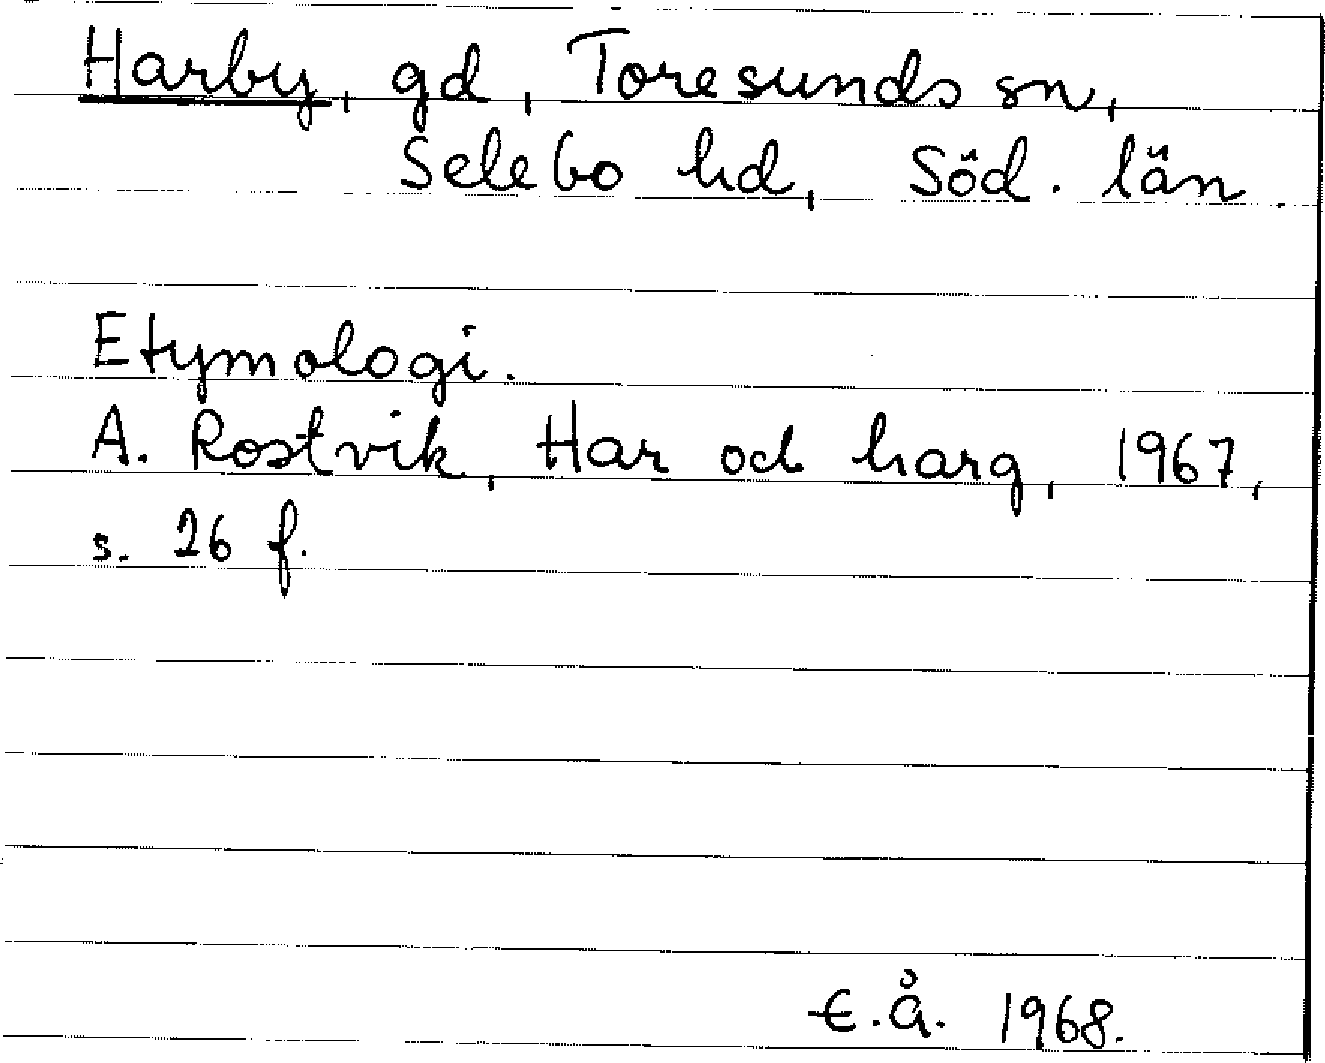 Harby, gd, Toresunds sn,
Selebo hd, Söd. län.
Etymologi.
A. Rostvik, Har och harg, 1967,
s. 26 f.
E.Å. 1968.